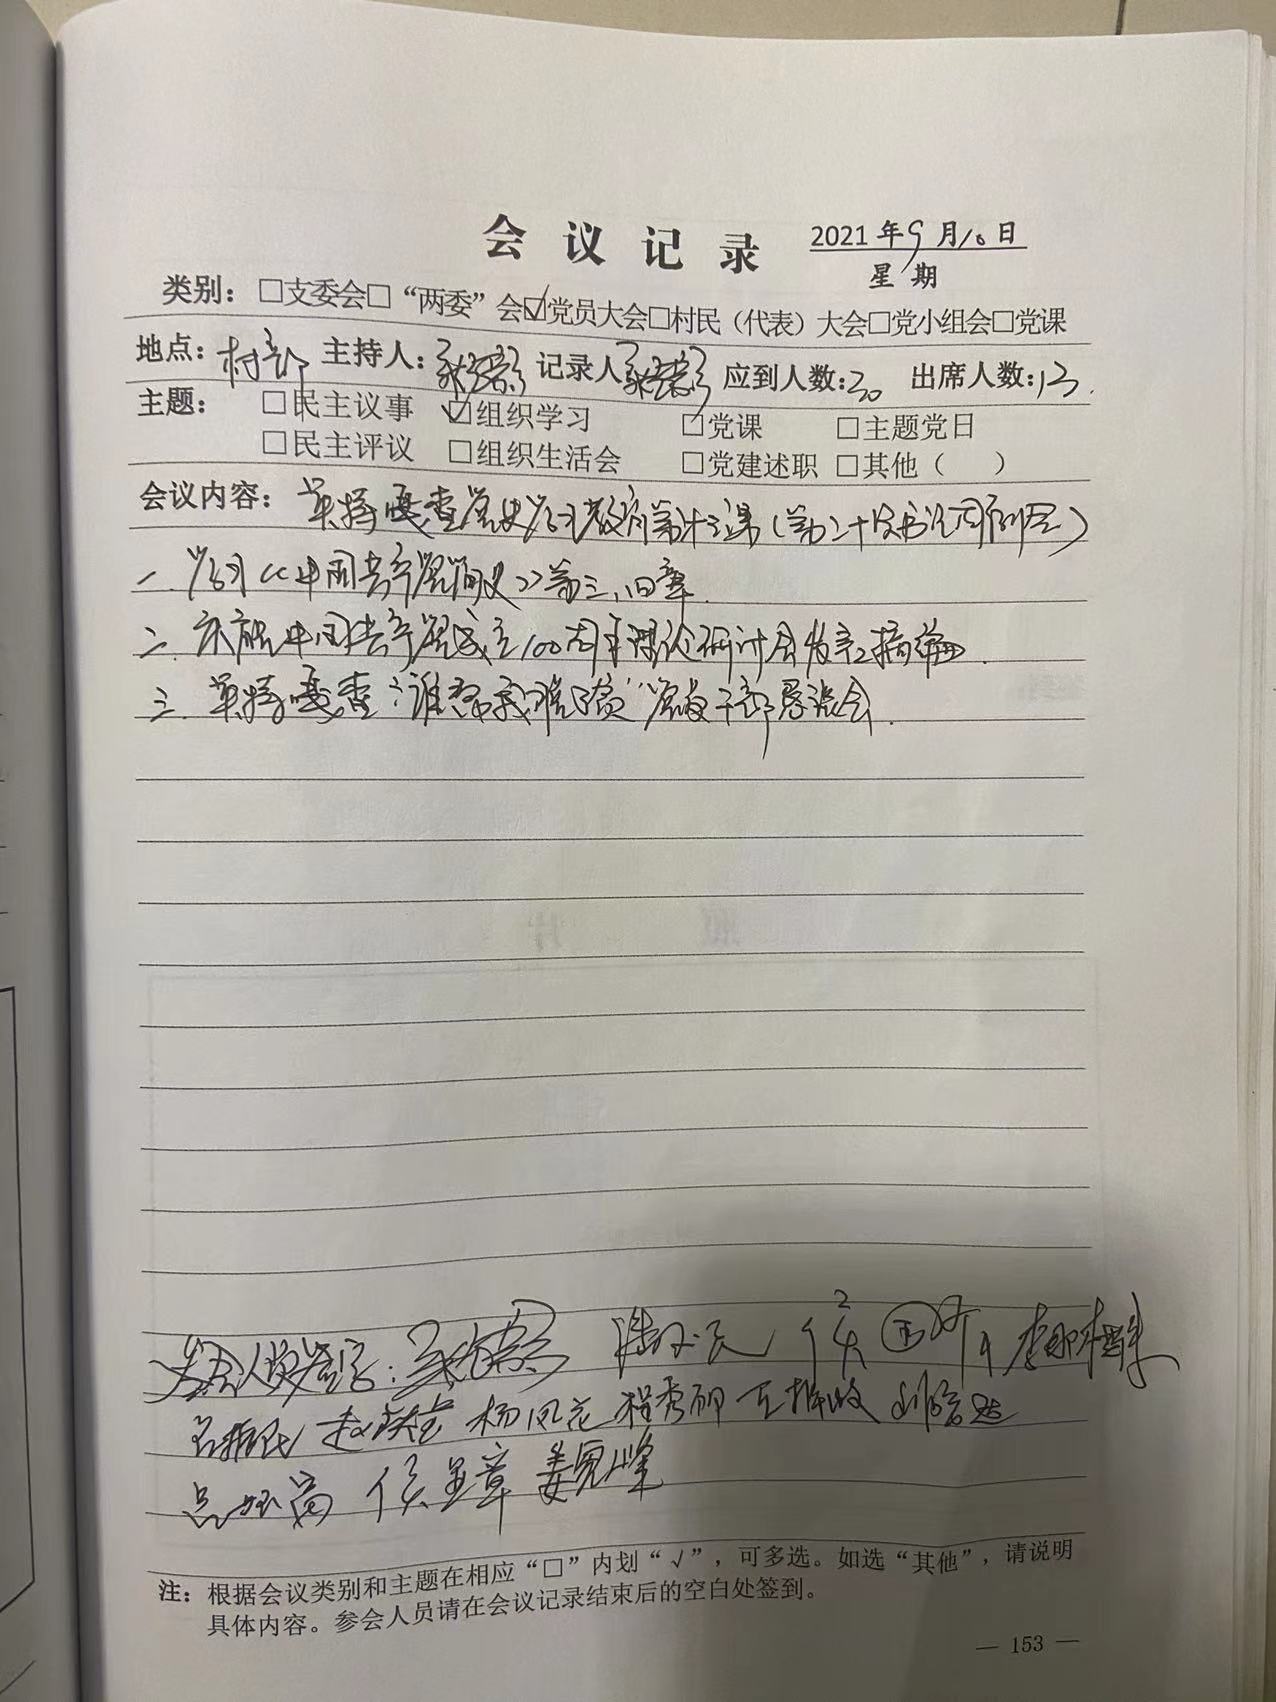 会议记录 2021年9月10日
星期
类别：□支委会□“两委”会☑党员大会□村民（代表）大会□党小组会□党课
地点：村部 主持人： 记录人 应到人数：30 出席人数：13.
主题： □民主议事 ☑组织学习 □党课 □主题党日
□民主评议 □组织生活会 □党建述职 □其他（ ）
会议内容： 英特嘎查党史学习教育第十三课（第二十次书记周例会）
一. 学习《中国共产党简史》第三、四章.
二. 庆祝中国共产党成立100周年理论研讨会发言摘编.
三. 英特嘎查“谁帮我脱贫”党政干部恳谈会.
参会人员签字：
杨凤花 程秀娜
姜宪峰
注：根据会议类别和主题在相应“□”内划“√”，可多选。如选“其他”，请说明
具体内容。参会人员请在会议记录结束后的空白处签到。
— 153 —